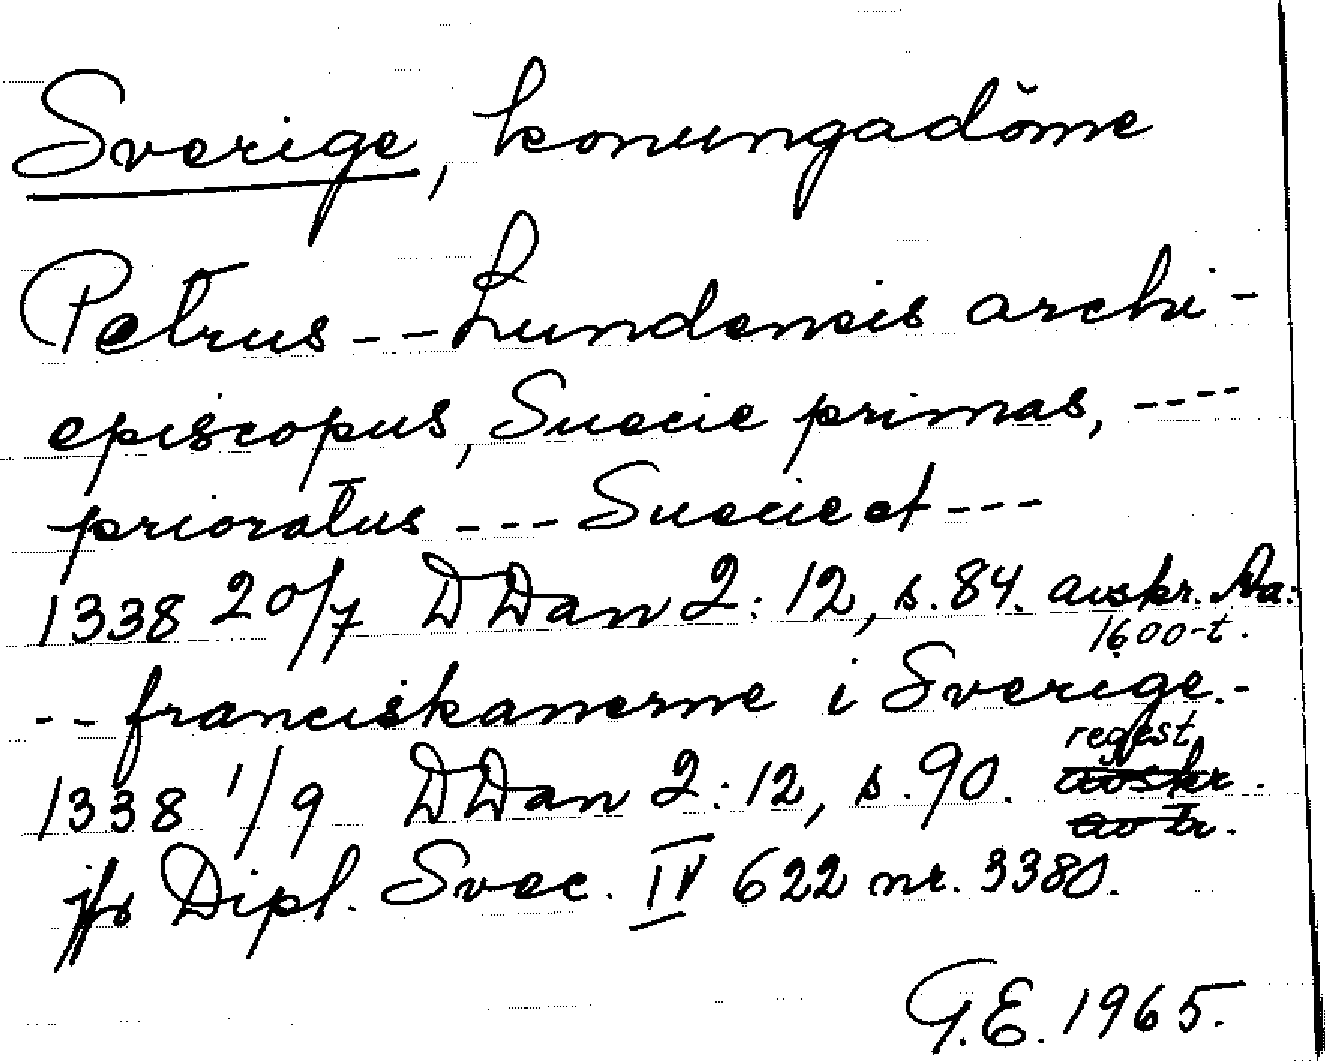 Sverige, konungadöme
Petrus -- Lundensis archi-
episcopus, Suecie primas, ----
prioratus --- Suecie et ---
1338 20/7 DDan 2:12, s. 84. avskr.
1600-t.
-- franciskanerne i Sverige.-
regest
1338 1/9 DDan 2:12, s. 90. avskr.
av tr.
jfr Dipl. Svec. IV 622 nr. 3380.
G.E. 1965.